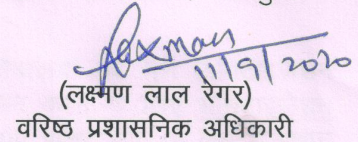 Laxman
11/9/2020
(लक्ष्मण लाल रेगर)
वरिष्ठ प्रशासनिक अधिकारी